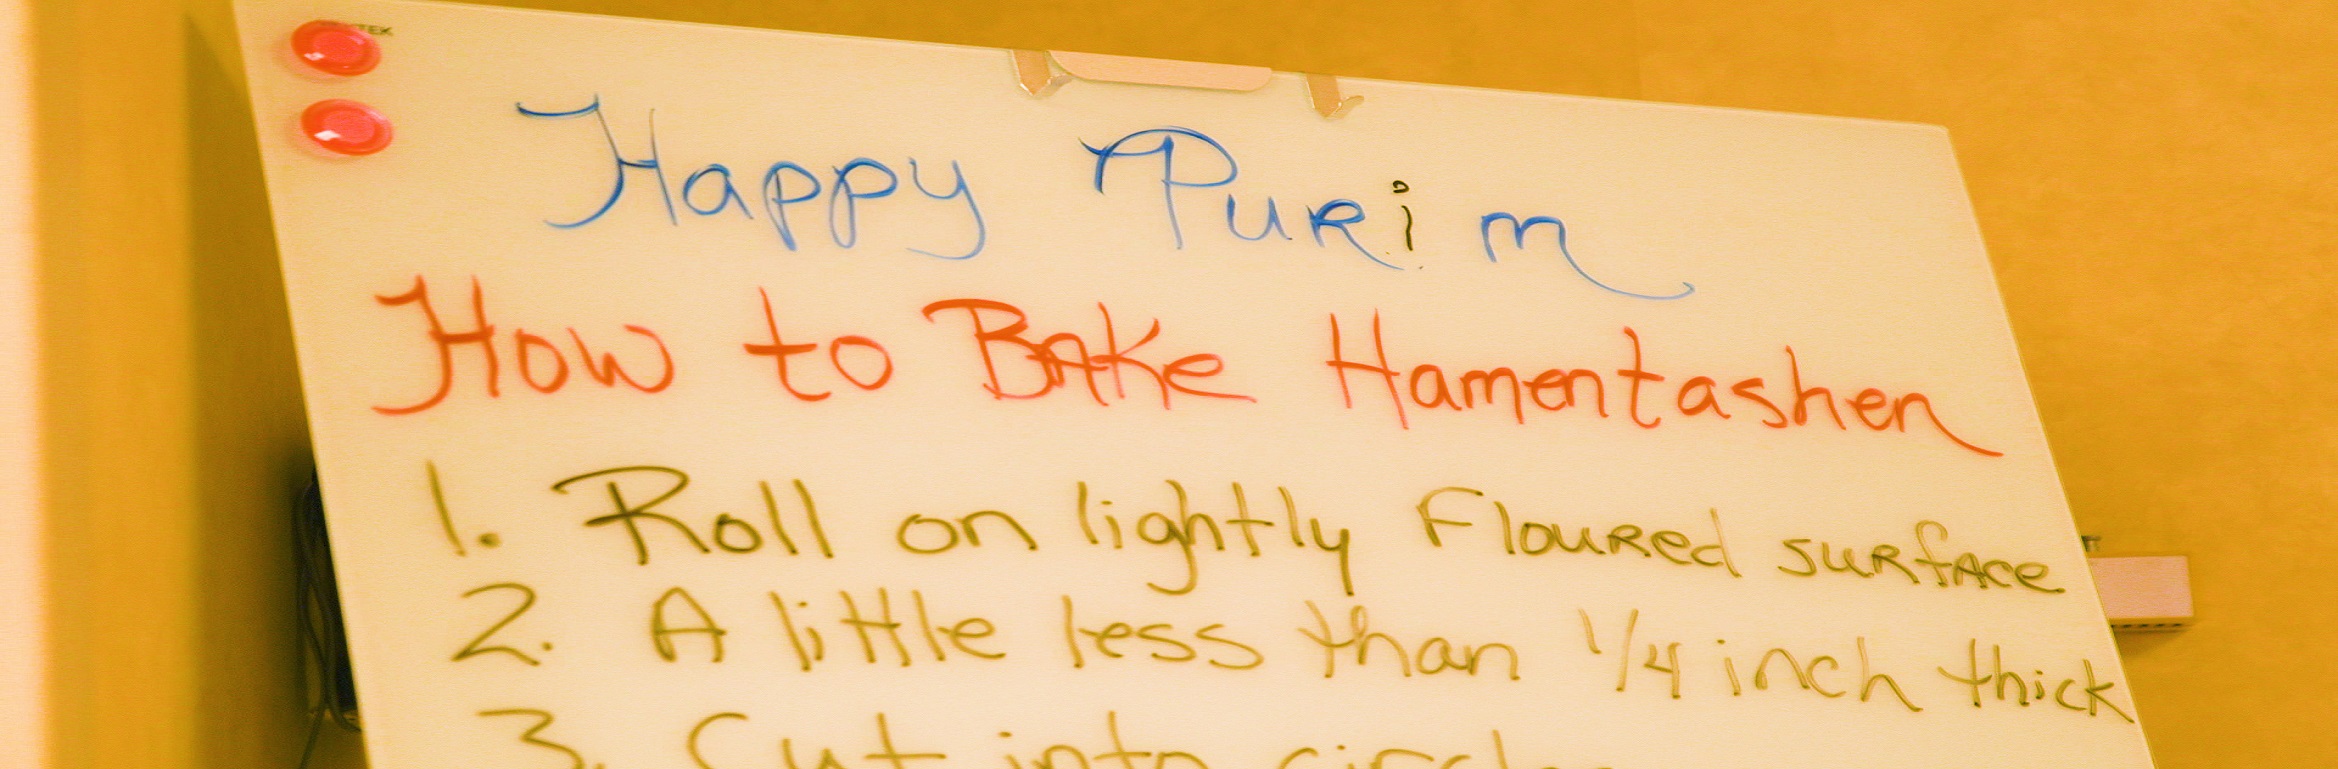 Happy Purim
How to Bake Hamentashen
1. Roll on lightly Floured surface
2. A little less than 1/4 inch thick
3. Cut into